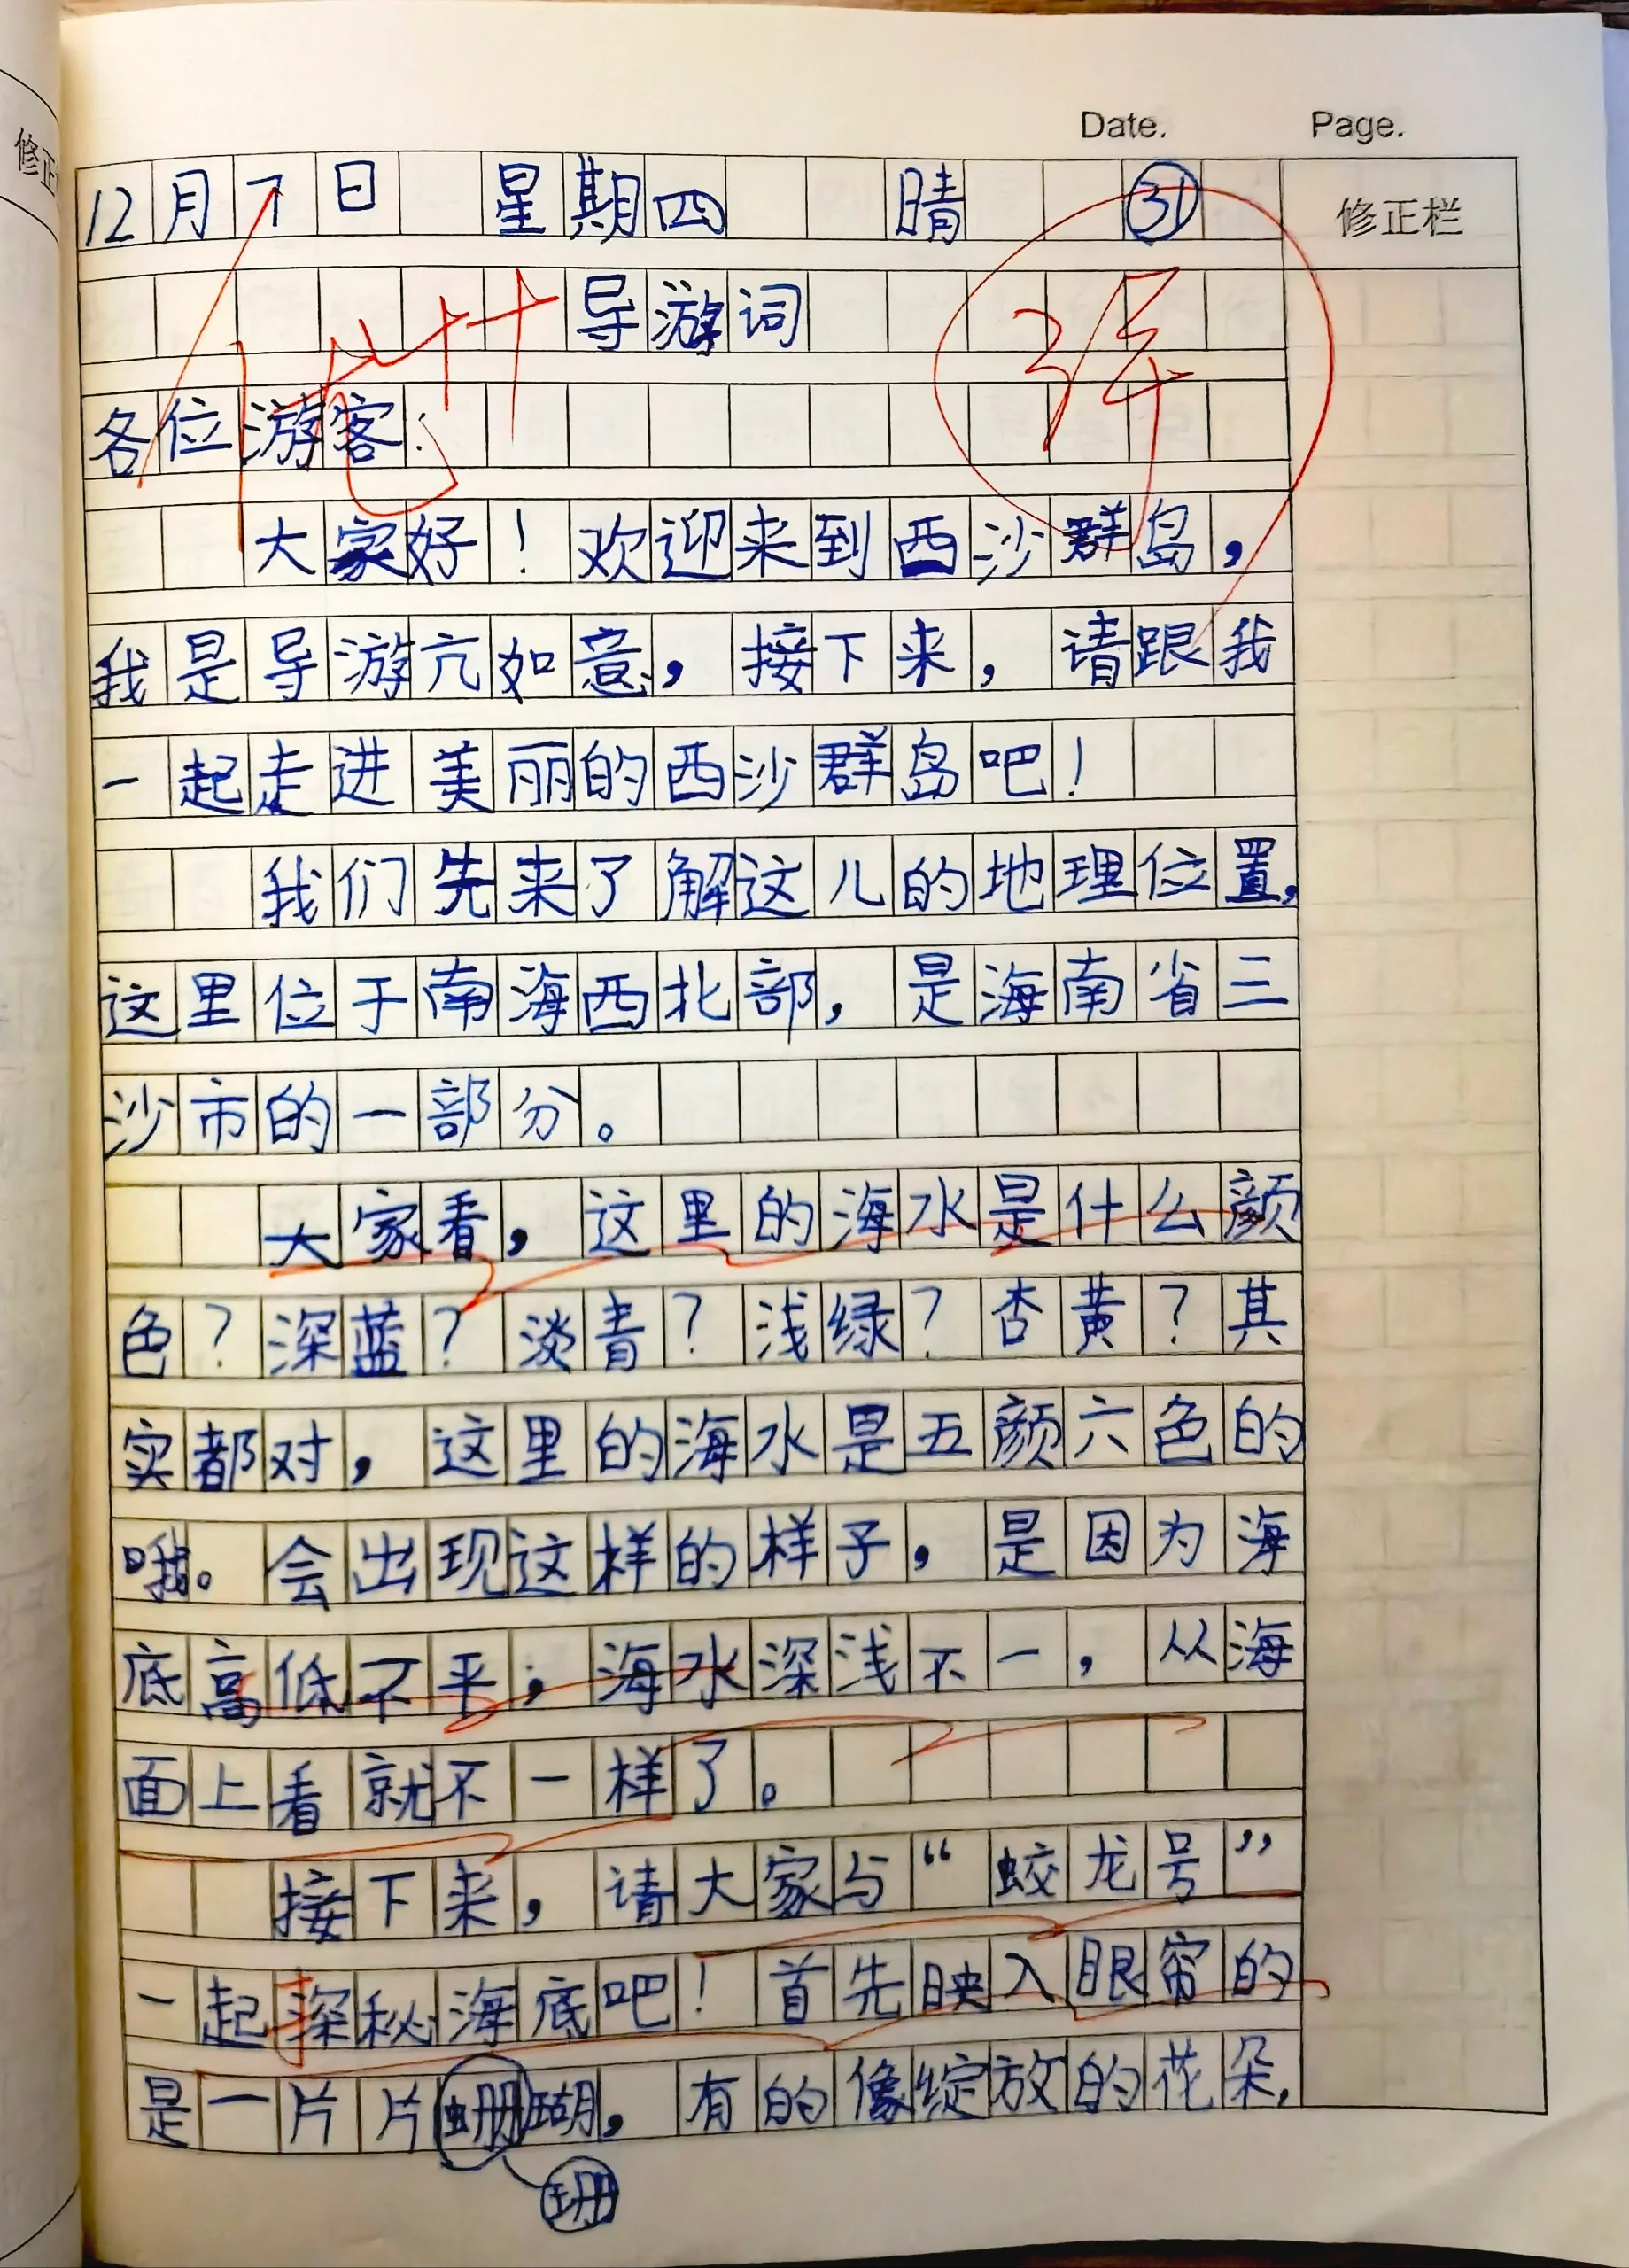 修正
Date. Page.
12月7日 星期四 晴 ㉛
修正栏
导游词
优++
各位游客:
大家好!欢迎来到西沙群岛,
我是导游亢如意,接下来,请跟我
一起走进美丽的西沙群岛吧!
我们先来了解这儿的地理位置,
这里位于南海西北部,是海南省三
沙市的一部分。
大家看,这里的海水是什么颜
色?深蓝?淡青?浅绿?杏黄?其
实都对,这里的海水是五颜六色的
哦。会出现这样的样子,是因为海
底高低不平;海水深浅不一,从海
面上看就不一样了。
接下来,请大家与“蛟龙号”
一起探秘海底吧!首先映入眼帘的
是一片片珊瑚,有的像绽放的花朵,
珊